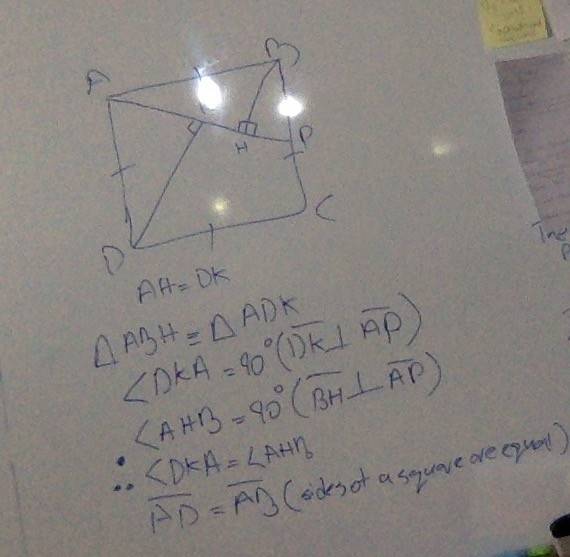 A
B
H
P
D
C
AH = DK
△ABH ≡ △ADK
∠DKA = 90° (DK ⊥ AP)
∠AHB = 90° (BH ⊥ AP)
∴ ∠DKA = ∠AHB
AD = AB (sides of a square are equal)